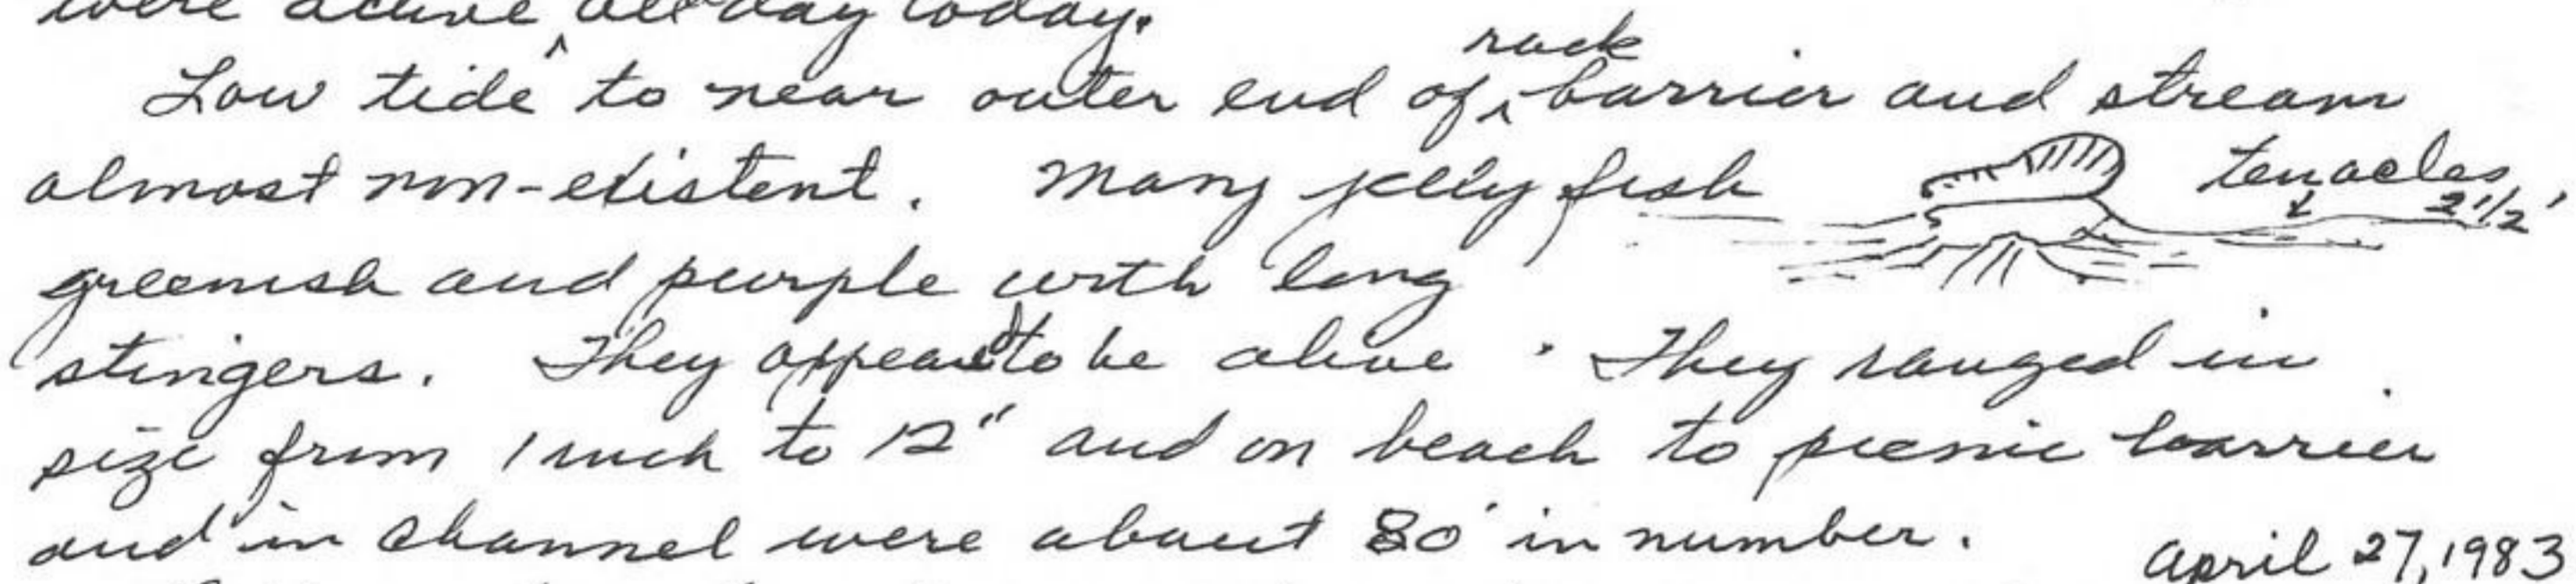 were active all day today.
Low tide to near outer end of rock barrier and stream
almost non-existent. Many jelly fish tenacles 2 1/2'
greenish and purple with long
stingers. They appeared to be alive. They ranged in
size from 1 inch to 12" and on beach to picnic barrier
and in channel were about 80 in number.
April 27, 1983